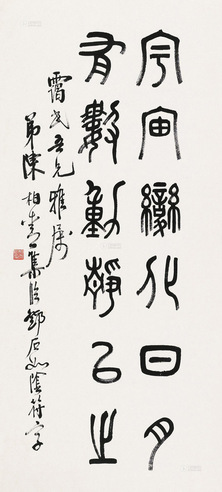 宇宙變化日月
有數動靜以之
民吾兄雅屬
弟陳柏 集臨鄧石如陰符字